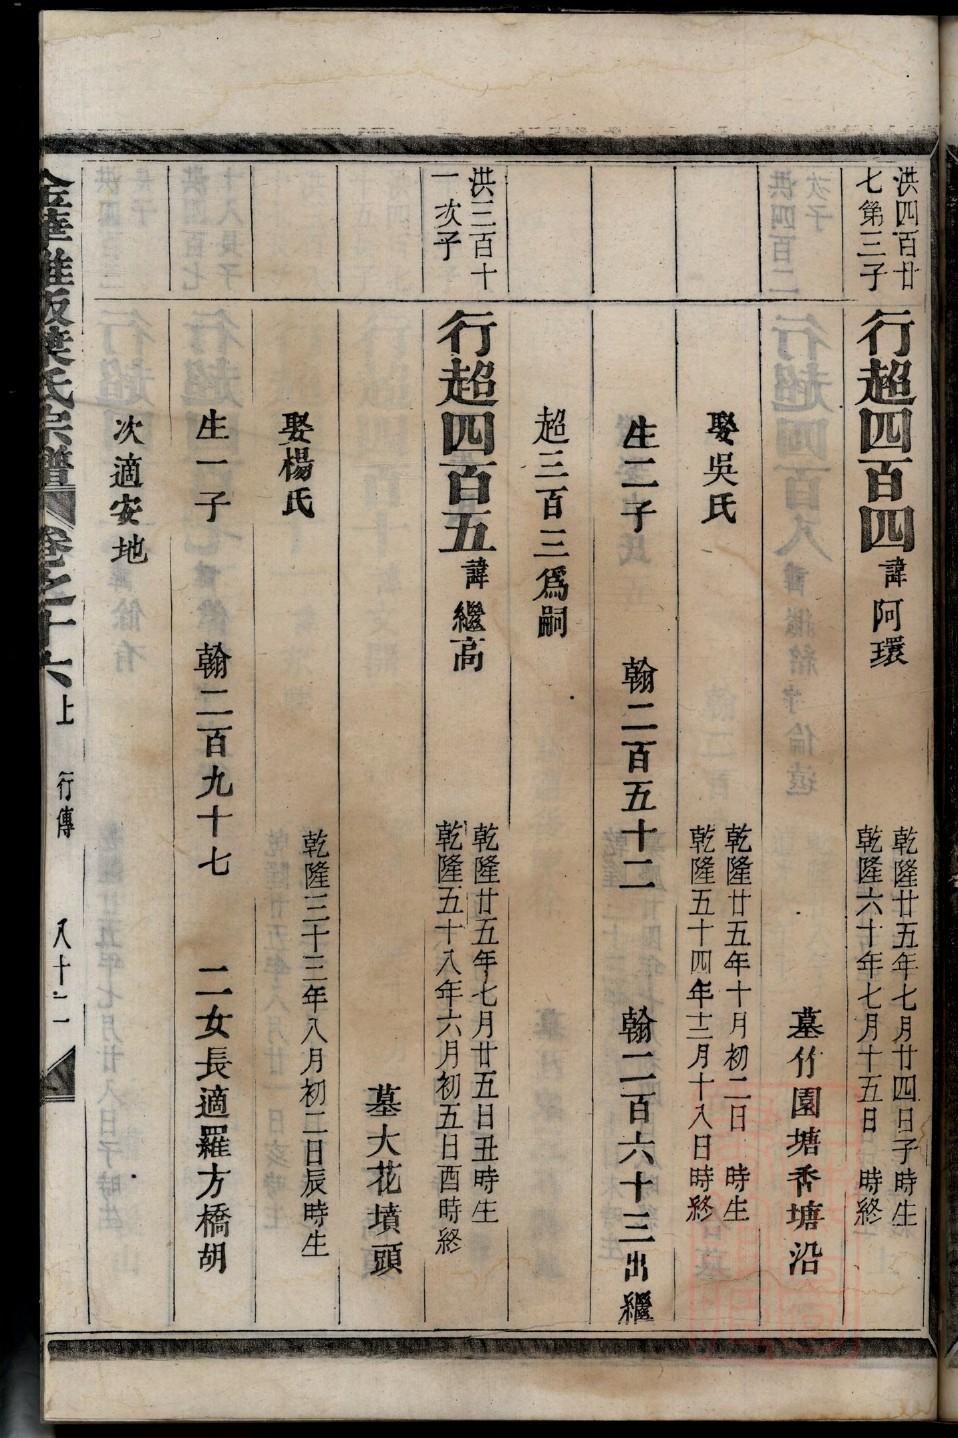 洪四百廿
七第三子
行超四百四
諱阿環
乾隆廿五年七月廿四日子時生
乾隆六十年七月十五日　時終
墓竹園塘香塘沿
娶吳氏
乾隆廿五年十月初二日　時生
乾隆五十四年十二月十八日時終
生二子　翰二百五十二　翰二百六十三出繼
超三百三爲嗣
洪三百十
一次子
行超四百五
諱繼高
乾隆廿五年七月廿五日丑時生
乾隆五十八年六月初五日酉時終
墓大花墳頭
娶楊氏
乾隆三十三年八月初二日辰時生
生一子　翰二百九十七　二女長適羅方橋胡
次適安地
葉氏宗譜　卷之十六上　行傳　八十一